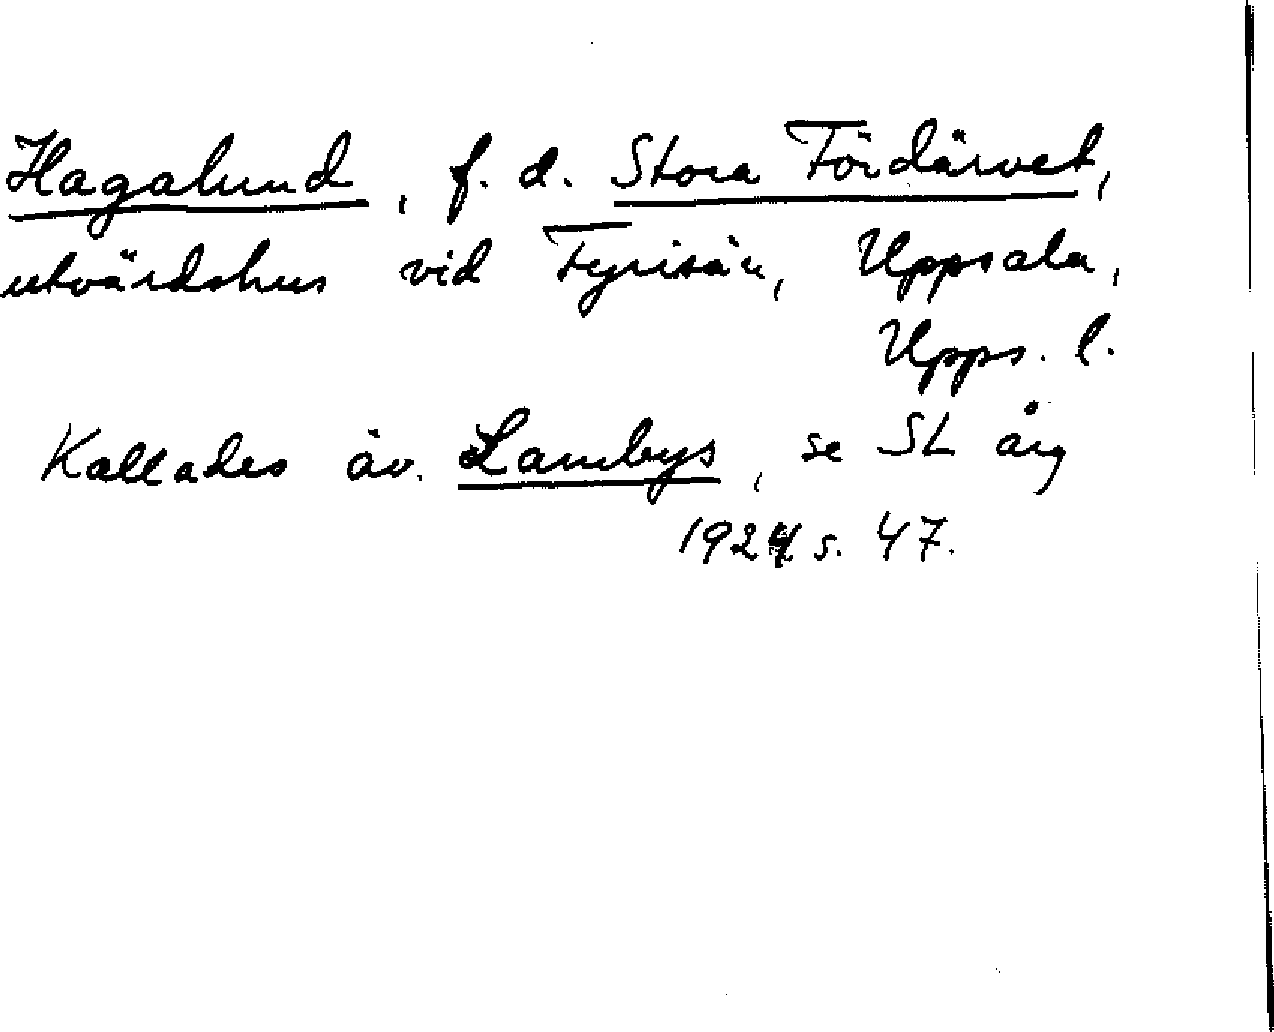 Hagalund, f. d. Stora Fördärvet,
utvärdshus vid Fyrisån, Uppsala,
Upps. l.
Kallades äv. Lambys, se SL årg
1924 s. 47.